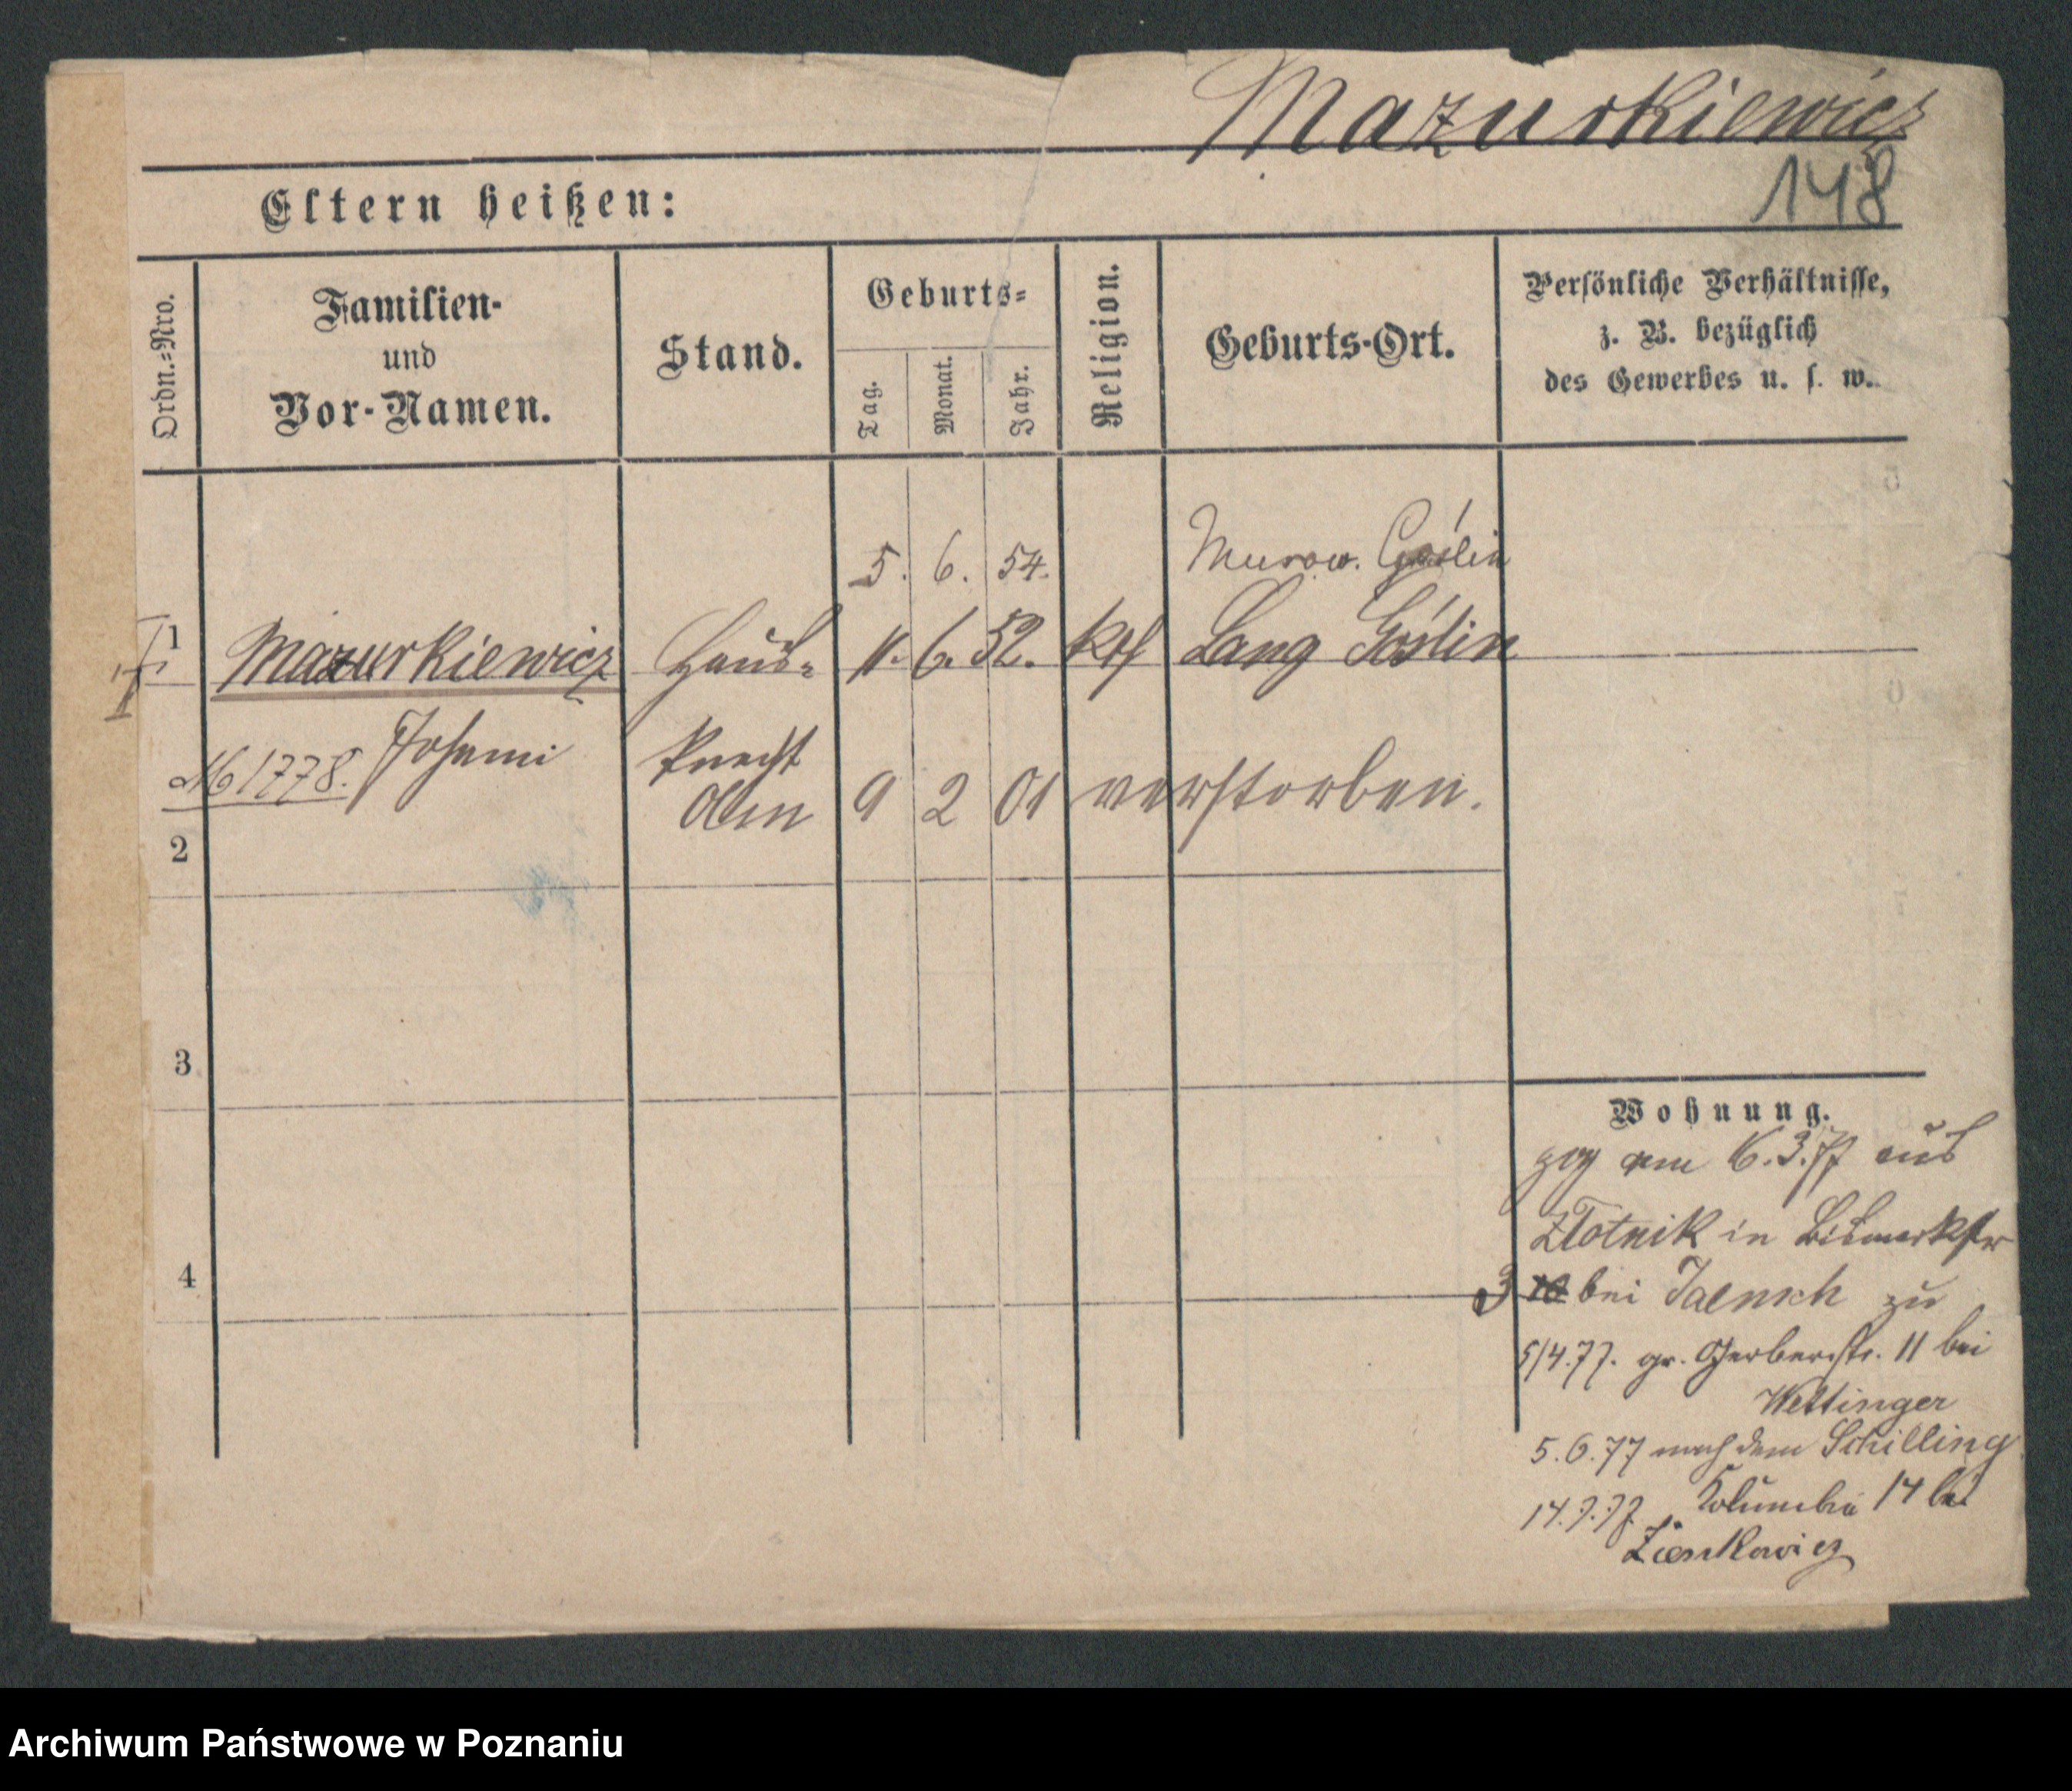 Mazurkiewicz
148
Eltern heißen:
Ordn.=Nro.
Familien-
und
Vor-Namen.
Stand.
Geburts=
Tag.
Monat.
Jahr.
Religion.
Geburts-Ort.
Persönliche Verhältnisse,
z. B. bezüglich
des Gewerbes u. s. w.
5. 6. 54. Murow. Goślin
1 Mazurkiewicz Haus= 11. 6. 52. kth Lang Goślin
№ 1778. Johann Knecht
9 2 01 verstorben.
2
3
4
Wohnung.
zog am 6.3.77 aus
Zlotnik in Bismarkstr
3 10 bei Jaensch zu
5/4.77. gr. Gerberstr. 11 bei
Wettinger
5.6.77 nach dem Schilling
14.7.77 Kolumbia 14 bei
Zienkowicz
Archiwum Państwowe w Poznaniu